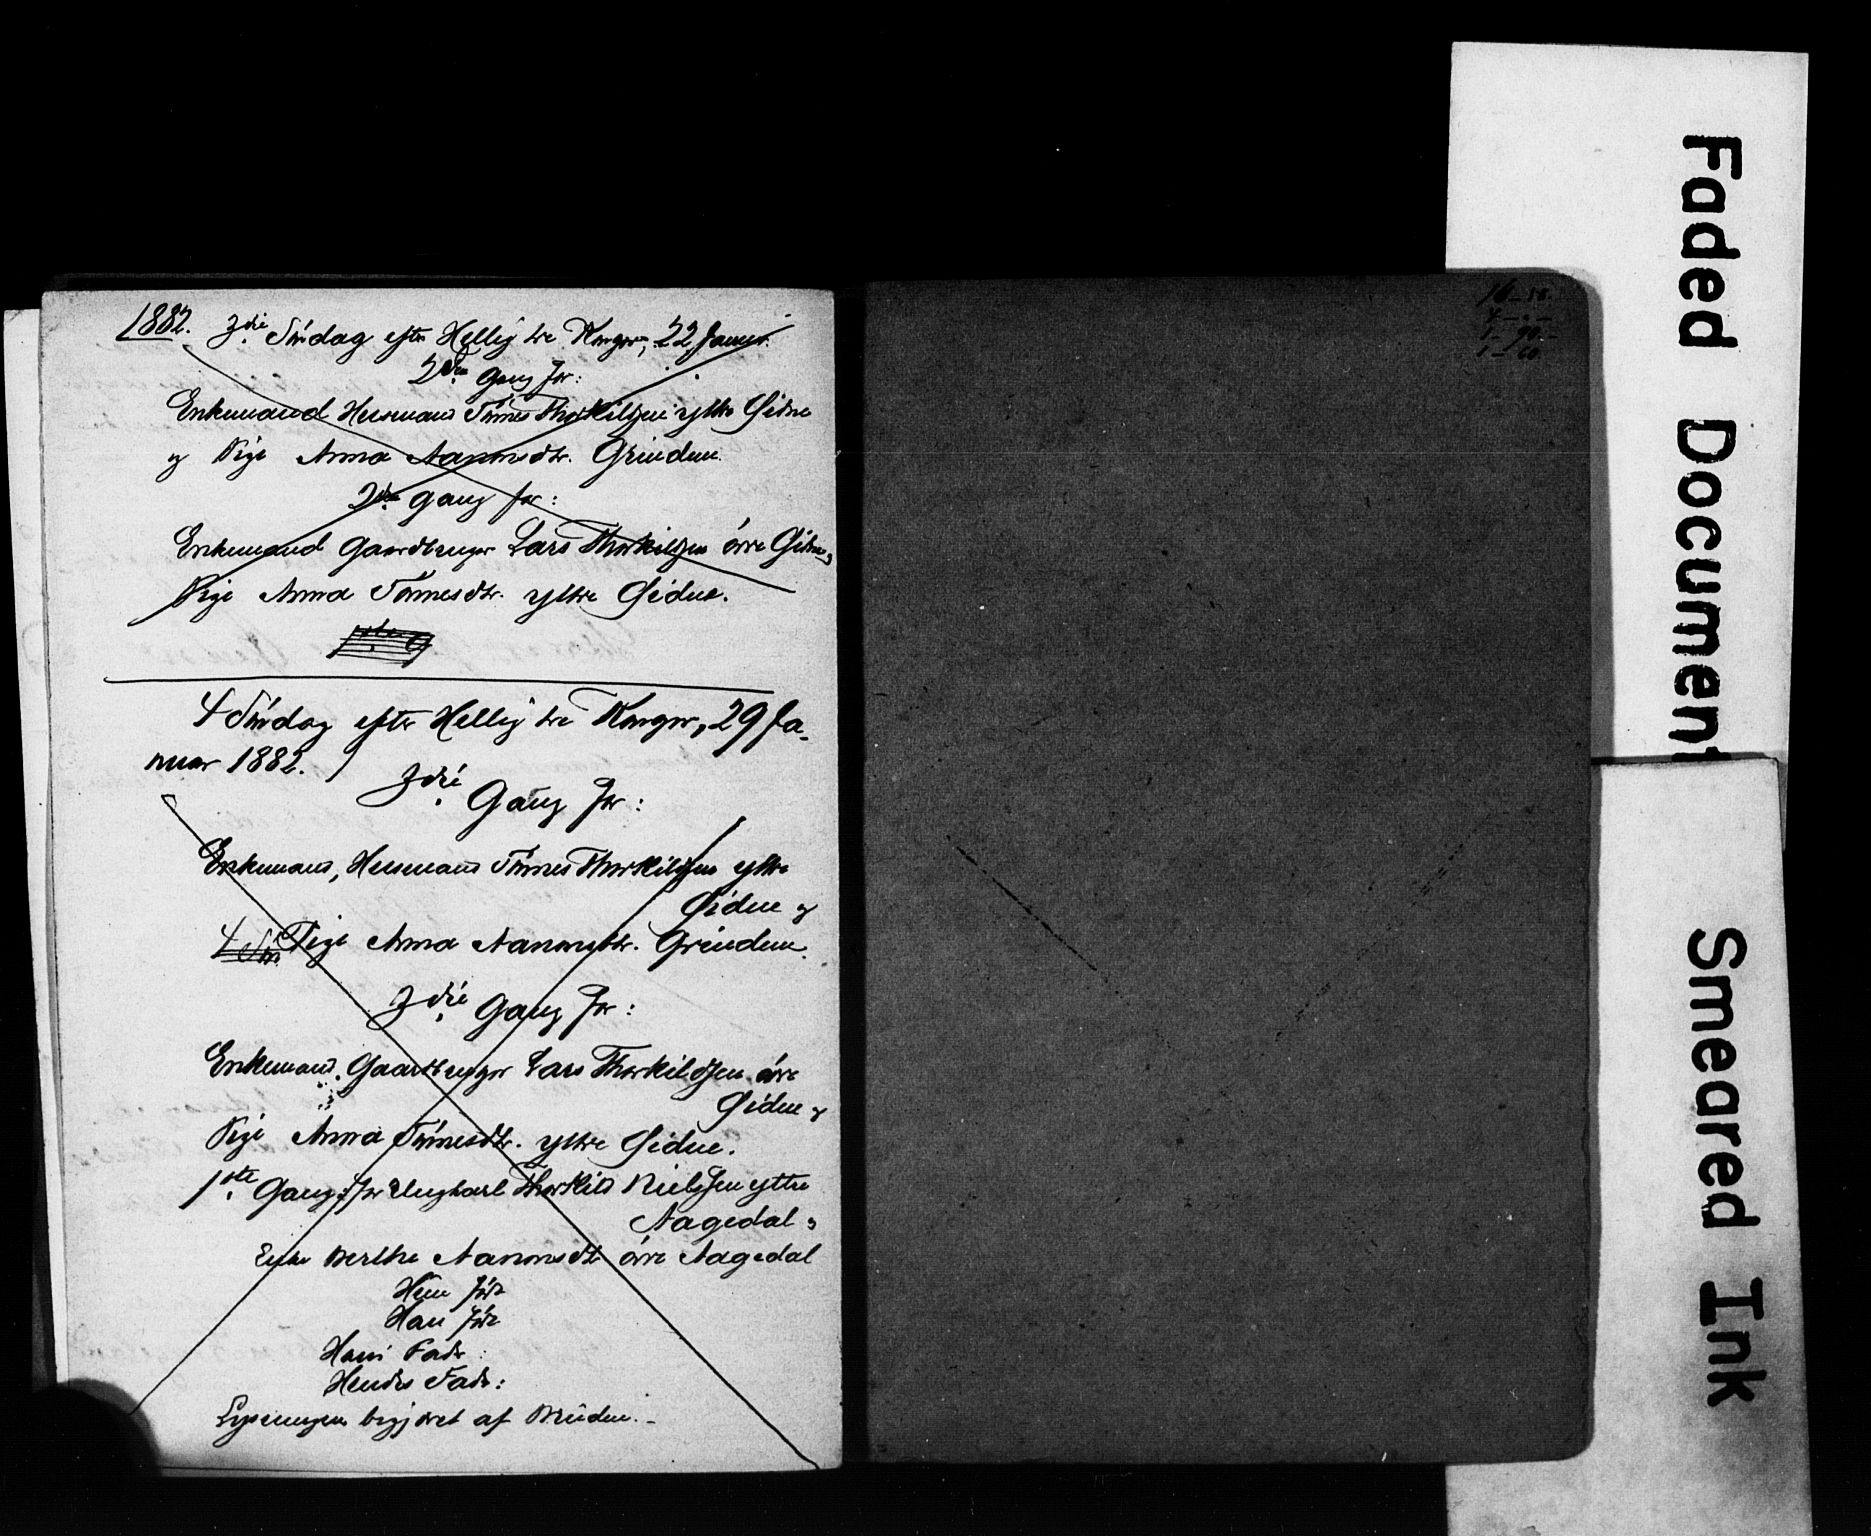 1882. 3die Søndag efter Hellig tre Konger, 22 Januar.
2den Gang for:
Enkemand Huusmand Tønnes Thorkildsen ytre Eidne
og Pige Anna Aanonsdtr. Grinden.
2den Gang for:
Enkemand Gaardbruger Lars Thorkildsen øvre Eidne,
Pige Anna Tønnesdtr. ytre Eidne.
1ste G
4 Søndag efter Hellig tre Konger, 29 Ja-
nuar 1882.
3die Gang for:
Enkemand, Huusmand Tønnes Thorkildsen ytre
Eidne og
4 Søn Pige Anna Aanonsdtr. Grinden.
3die Gang for:
Enkemand, Gaardbruger Lars Thorkildsen øvre
Eidne og
Pige Anna Tønnesdtr. ytre Eidne.
1ste Gang for Ungkarl Thorkild Nielssen ytre
Aagedal og
Enke Berthe Aanonsdtr øvre Aagedal
Hun født
Han født
Hans Fader:
Hendes Fader:
Lysningen begjæret af Bruden.-
Faded Document
Smeared Ink